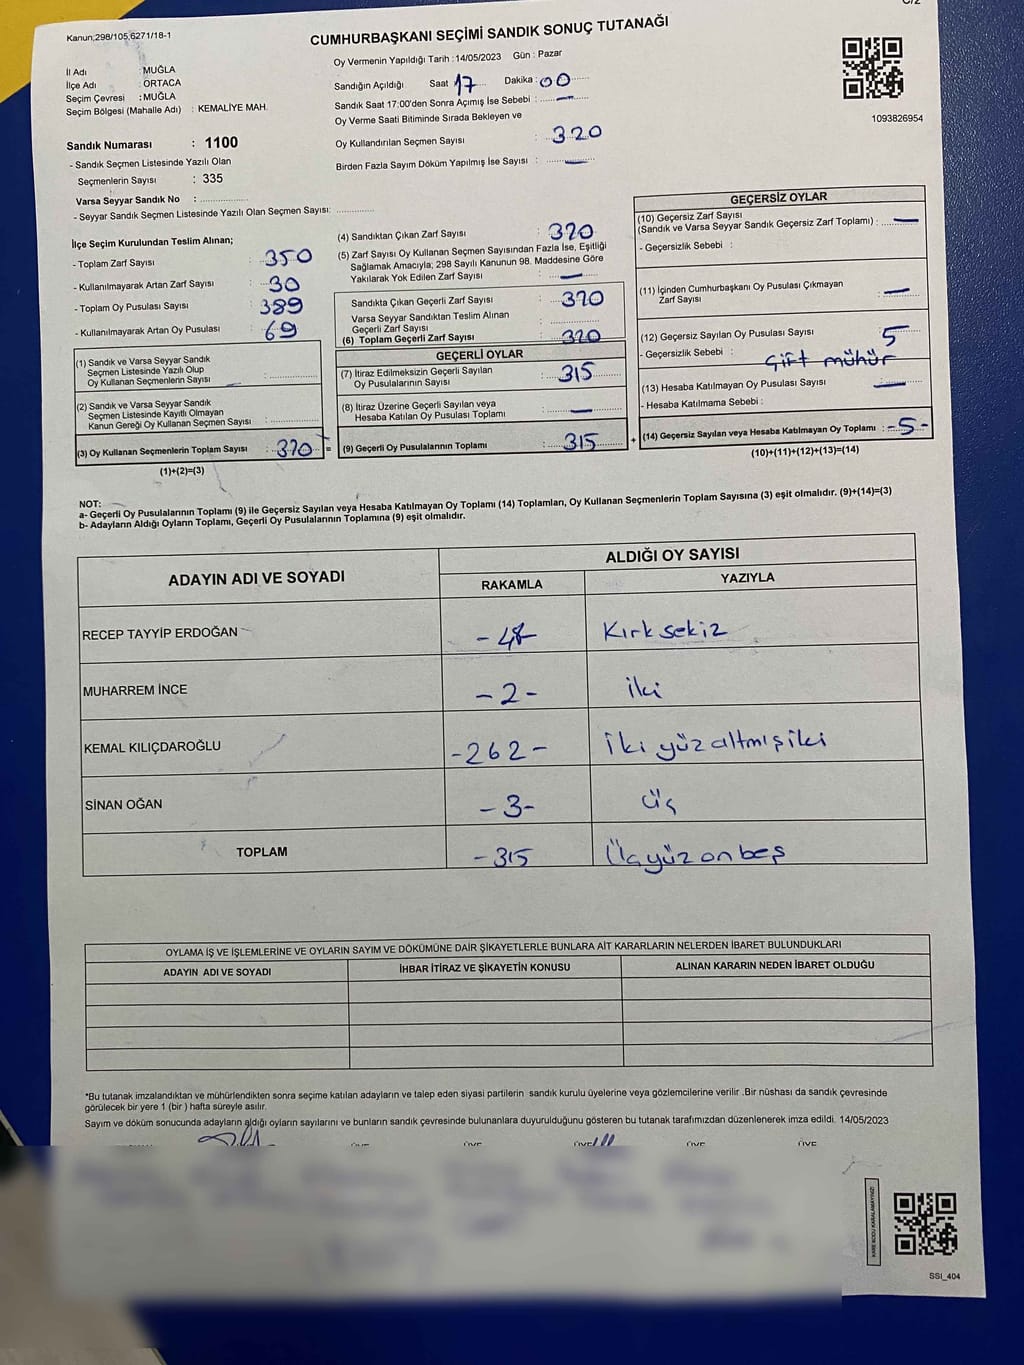 C/2
Kanun,298/105,6271/18-1
CUMHURBAŞKANI SEÇİMİ SANDIK SONUÇ TUTANAĞI
İl Adı : MUĞLA
İlçe Adı : ORTACA
Seçim Çevresi : MUĞLA
Seçim Bölgesi (Mahalle Adı) : KEMALİYE MAH.
Sandık Numarası : 1100
- Sandık Seçmen Listesinde Yazılı Olan
Seçmenlerin Sayısı : 335
Varsa Seyyar Sandık No :
- Seyyar Sandık Seçmen Listesinde Yazılı Olan Seçmen Sayısı:
Oy Vermenin Yapıldığı Tarih :14/05/2023 Gün : Pazar
Sandığın Açıldığı Saat 17 Dakika : 00
Sandık Saat 17:00'den Sonra Açımış İse Sebebi : —
Oy Verme Saati Bitiminde Sırada Bekleyen ve
Oy Kullandırılan Seçmen Sayısı : 320
Birden Fazla Sayım Döküm Yapılmış İse Sayısı : —
1093826954
İlçe Seçim Kurulundan Teslim Alınan;
- Toplam Zarf Sayısı : 350
- Kullanılmayarak Artan Zarf Sayısı : 30
- Toplam Oy Pusulası Sayısı : 389
- Kullanılmayarak Artan Oy Pusulası : 69
(1) Sandık ve Varsa Seyyar Sandık
Seçmen Listesinde Yazılı Olup
Oy Kullanan Seçmenlerin Sayısı :
(2) Sandık ve Varsa Seyyar Sandık
Seçmen Listesinde Kayıtlı Olmayan
Kanun Gereği Oy Kullanan Seçmen Sayısı :
(3) Oy Kullanan Seçmenlerin Toplam Sayısı : 320 =
(1)+(2)=(3)
(4) Sandıktan Çıkan Zarf Sayısı : 320
(5) Zarf Sayısı Oy Kullanan Seçmen Sayısından Fazla İse, Eşitliği
Sağlamak Amacıyla; 298 Sayılı Kanunun 98. Maddesine Göre
Yakılarak Yok Edilen Zarf Sayısı : —
Sandıkta Çıkan Geçerli Zarf Sayısı : 320
Varsa Seyyar Sandıktan Teslim Alınan
Geçerli Zarf Sayısı :
(6) Toplam Geçerli Zarf Sayısı : 320
GEÇERLİ OYLAR
(7) İtiraz Edilmeksizin Geçerli Sayılan
Oy Pusulalarının Sayısı : 315
(8) İtiraz Üzerine Geçerli Sayılan ve
Hesaba Katılan Oy Pusulası Toplamı : —
(9) Geçerli Oy Pusulalarının Toplamı : 315 +
GEÇERSİZ OYLAR
(10) Geçersiz Zarf Sayısı
(Sandık ve Varsa Seyyar Sandık Geçersiz Zarf Toplamı) : —
- Geçersizlik Sebebi :
(11) İçinden Cumhurbaşkanı Oy Pusulası Çıkmayan
Zarf Sayısı : —
(12) Geçersiz Sayılan Oy Pusulası Sayısı : 5
- Geçersizlik Sebebi : Çift mühür
(13) Hesaba Katılmayan Oy Pusulası Sayısı : —
- Hesaba Katılmama Sebebi :
(14) Geçersiz Sayılan veya Hesaba Katılmayan Oy Toplamı : -5-
(10)+(11)+(12)+(13)=(14)
NOT:
a- Geçerli Oy Pusulalarının Toplamı (9) ile Geçersiz Sayılan veya Hesaba Katılmayan Oy Toplamı (14) Toplamları, Oy Kullanan Seçmenlerin Toplam Sayısına (3) eşit olmalıdır. (9)+(14)=(3)
b- Adayların Aldığı Oyların Toplamı, Geçerli Oy Pusulalarının Toplamına (9) eşit olmalıdır.
ADAYIN ADI VE SOYADI ALDIĞI OY SAYISI
RAKAMLA YAZIYLA
RECEP TAYYİP ERDOĞAN -48- Kırk sekiz
MUHARREM İNCE -2- iki
KEMAL KILIÇDAROĞLU -262- İki yüz altmış iki
SİNAN OĞAN -3- Üç
TOPLAM -315 Üçyüz on beş
OYLAMA İŞ VE İŞLEMLERİNE VE OYLARIN SAYIM VE DÖKÜMÜNE DAİR ŞİKAYETLERLE BUNLARA AİT KARARLARIN NELERDEN İBARET BULUNDUKLARI
ADAYIN ADI VE SOYADI İHBAR İTİRAZ VE ŞİKAYETİN KONUSU ALINAN KARARIN NEDEN İBARET OLDUĞU
*Bu tutanak imzalandıktan ve mühürlendikten sonra seçime katılan adayların ve talep eden siyasi partilerin sandık kurulu üyelerine veya gözlemcilerine verilir .Bir nüshası da sandık çevresinde
görülecek bir yere 1 (bir ) hafta süreyle asılır.
Sayım ve döküm sonucunda adayların aldığı oyların sayılarını ve bunların sandık çevresinde bulunanlara duyurulduğunu gösteren bu tutanak tarafımızdan düzenlenerek imza edildi. 14/05/2023
ÜYE ÜYE ÜYE ÜYE ÜYE
KARE KODU KARALAMAYINIZ!
SSI_404